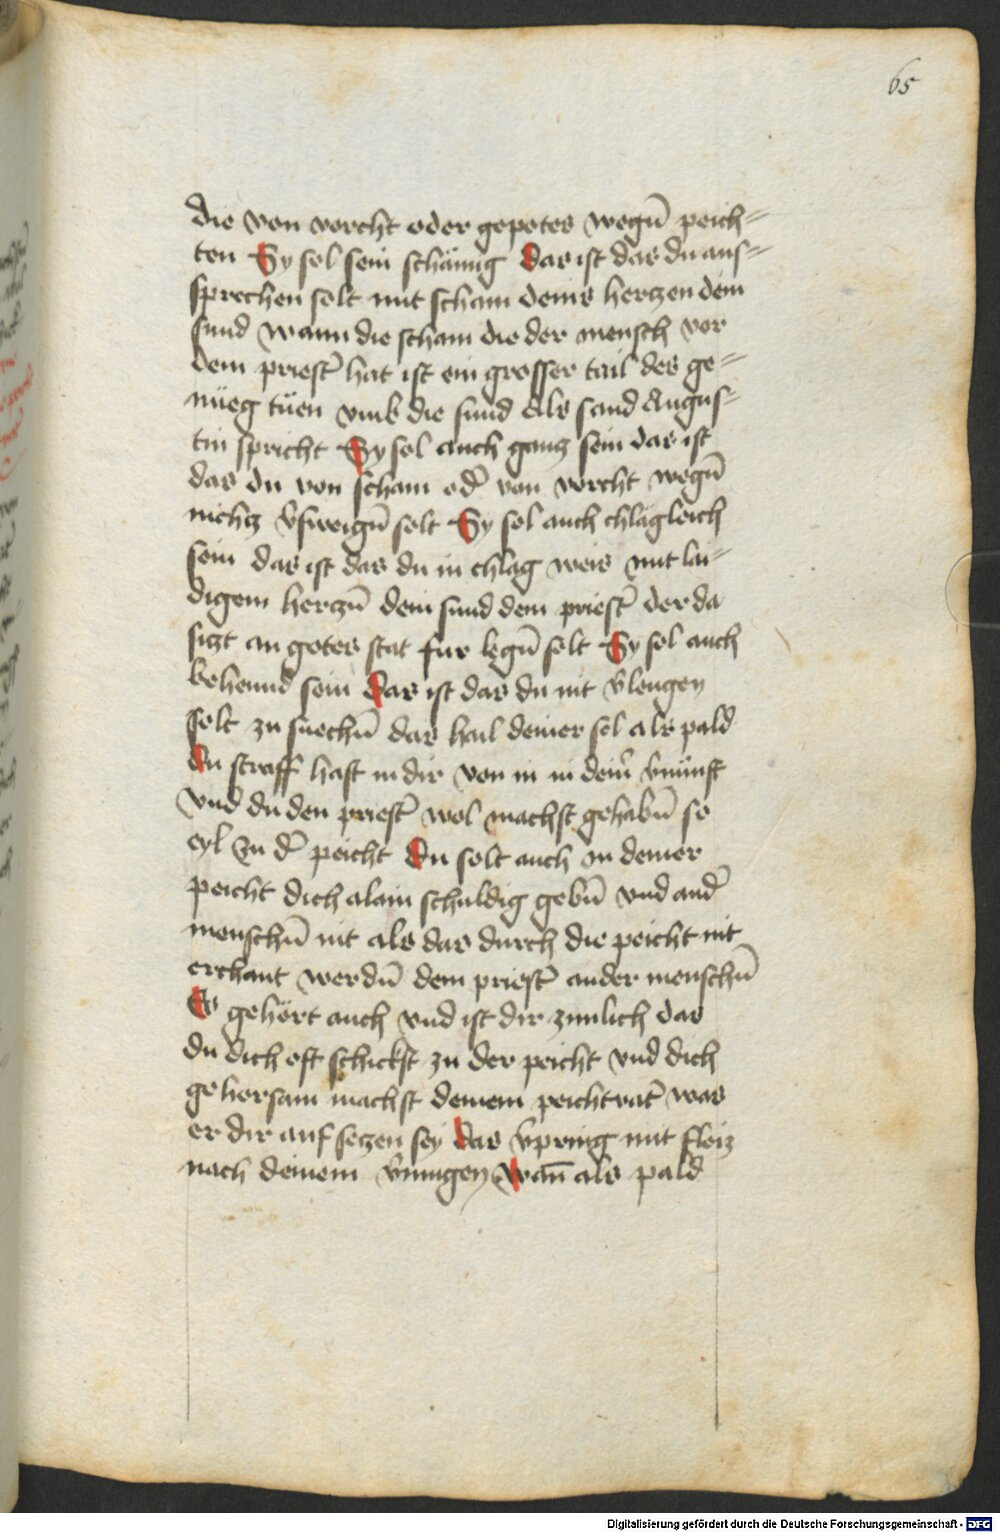 65
die von vorcht oder gepotes wegn̄ peich=
ten Sy sol sein schämig das ist das du aus=
sprechen solt mit scham deins hertzen dein
sund wann die scham die der mensch vor
dem priest̄ hat ist ein grosser tail des ge=
nüeg tüen vmb die sund Als sand Augus=
tin spricht Sy sol auch gantz sein das ist
das du von scham od̄ von vorcht wegn̄
nichtz v̄sweign̄ solt Sy sol auch chlagleich
sein das ist das du in chlag weis mit lai=
digem hertzn̄ dein sund dem priest̄ der da
sitzt an gotes stat fur legn̄ solt Sy sol auch
behennd sein das ist das du nit v̄lengen
solt zu suechn̄ das hail deiner sel als pald
du straff hast in dir von in in deinr̄ v̄nünft
vnd du den priest̄ wol machst gehabn̄ so
eyl zu d̄ peicht du solt auch in deiner
peicht dich alain schuldig gebn̄ vnd and̄
menschn̄ nit als das durch die peicht nit
erchant werdn̄ dem priest̄ ander menschn̄
Es gehört auch vnd ist dir zimlich das
du dich oft schickst zu der peicht vnd dich
gehorsam machst deinem peichtvat̄ was
er dir auf setzen sey das v̄pring mit fleiz
nach deinem v̄mugen wan̄ als pald
Digitalisierung gefördert durch die Deutsche Forschungsgemeinschaft - DFG